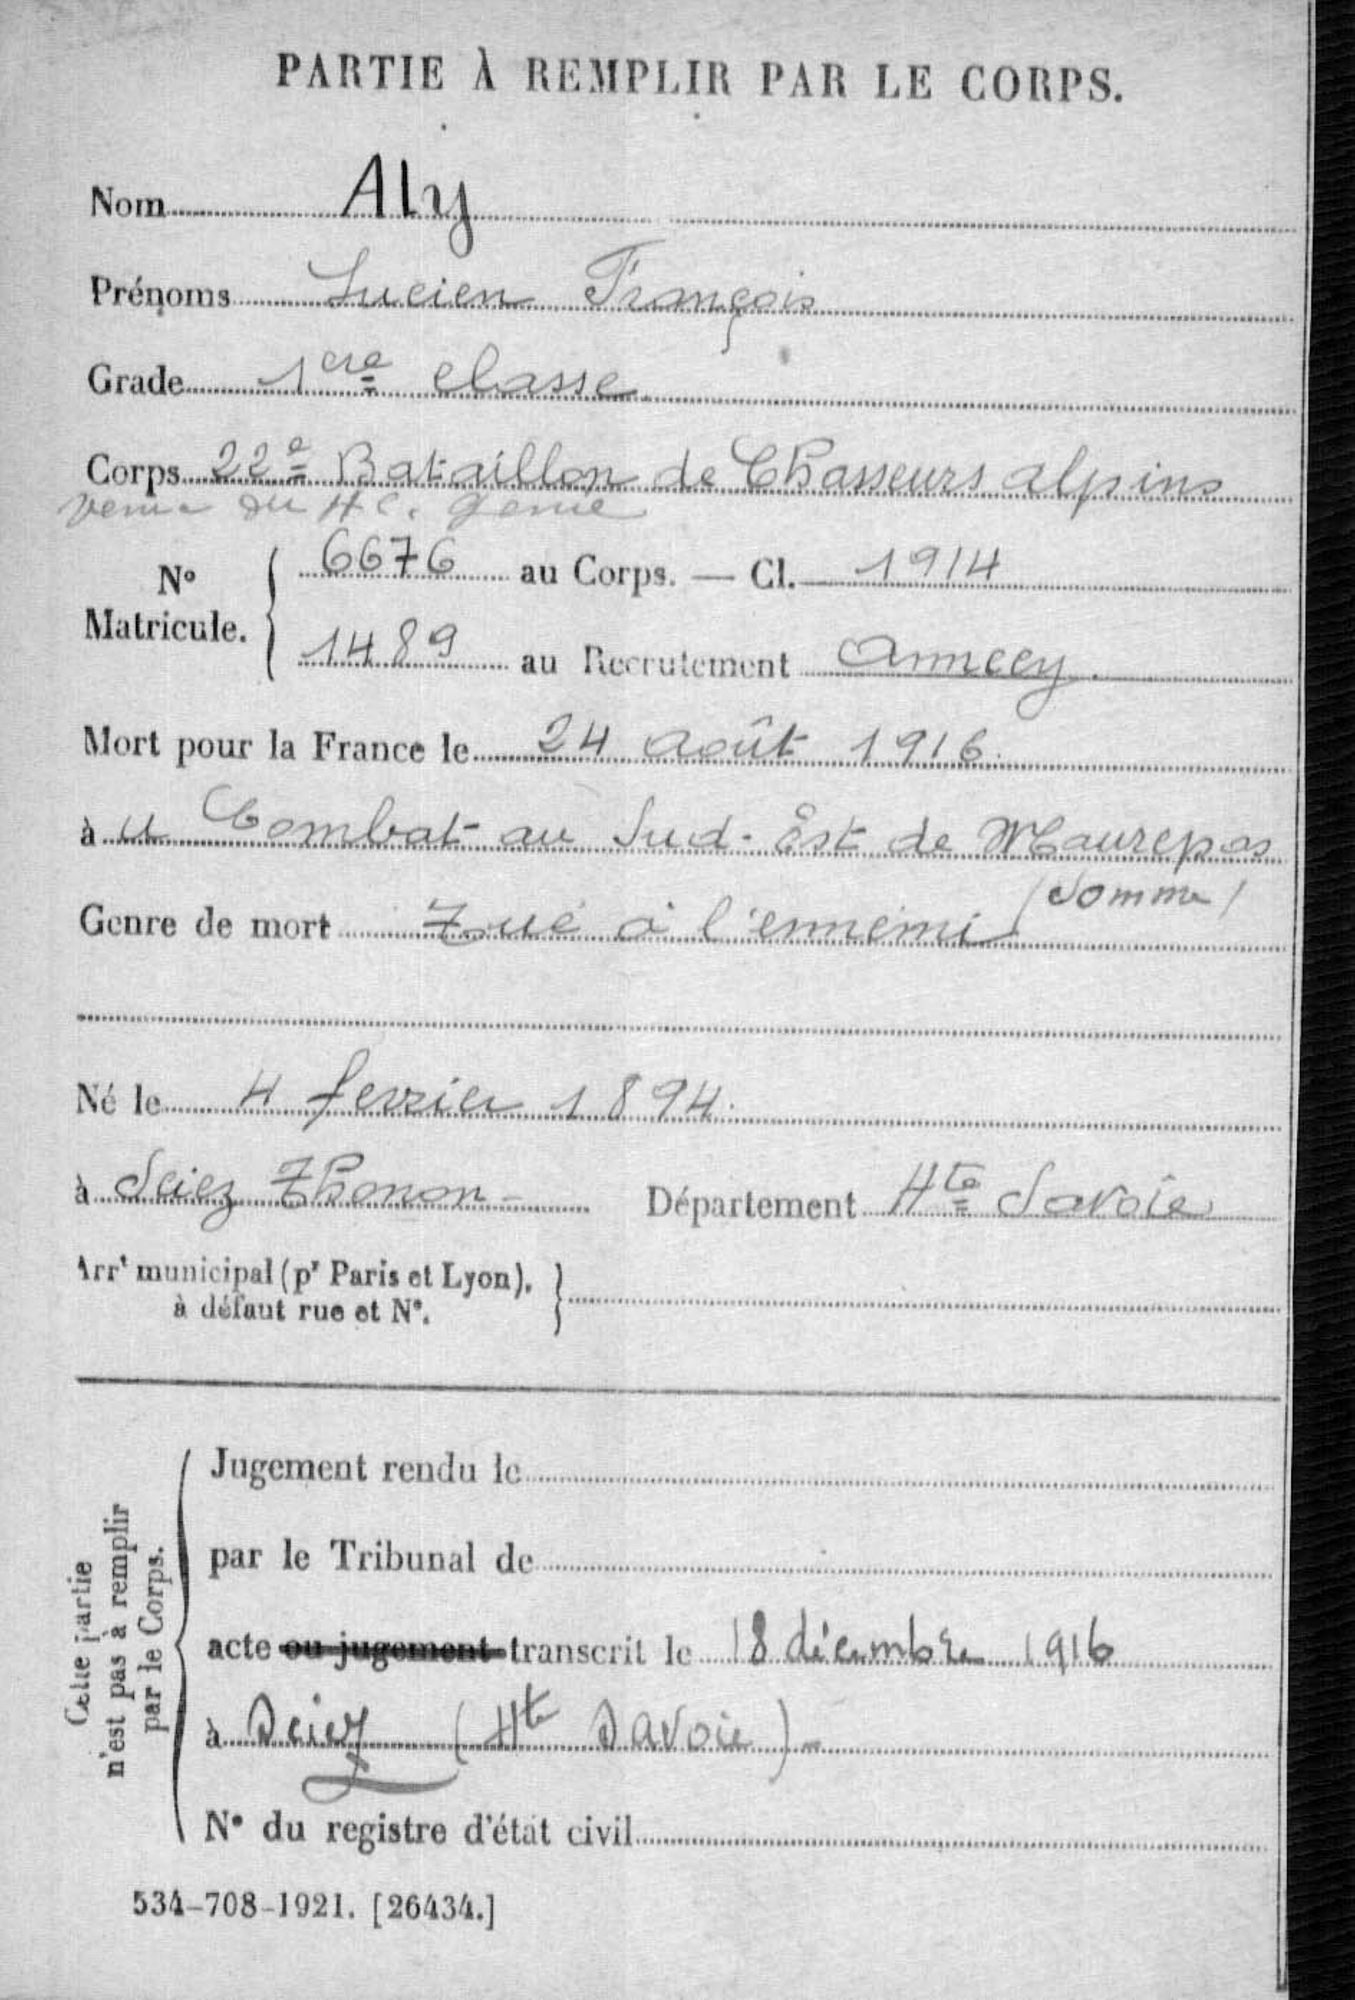 PARTIE À REMPLIR PAR LE CORPS.
Nom Aly
Prénoms Lucien François
Grade 1ere classe
Corps 22e Bataillon de Chasseurs alpins
venu du 4e. Génie
No Matricule. { 6676 au Corps. — Cl. 1914
1489 au Recrutement Annecy.
Mort pour la France le 24 août 1916.
à u Combat au Sud-Est de Maurepas
(Somme)
Genre de mort Tué à l'ennemi
Né le 4 fevrier 1894.
à Sciez Thonon - Département Hte Savoie
Arrt municipal (pr Paris et Lyon), }
à défaut rue et N°.
Cette partie
n'est pas à remplir
par le Corps.
Jugement rendu le
par le Tribunal de
acte ou jugement transcrit le 18 décembre 1916
à Sciez (Hte Savoie) -
N° du registre d'état civil
534-708-1921. [26434.]